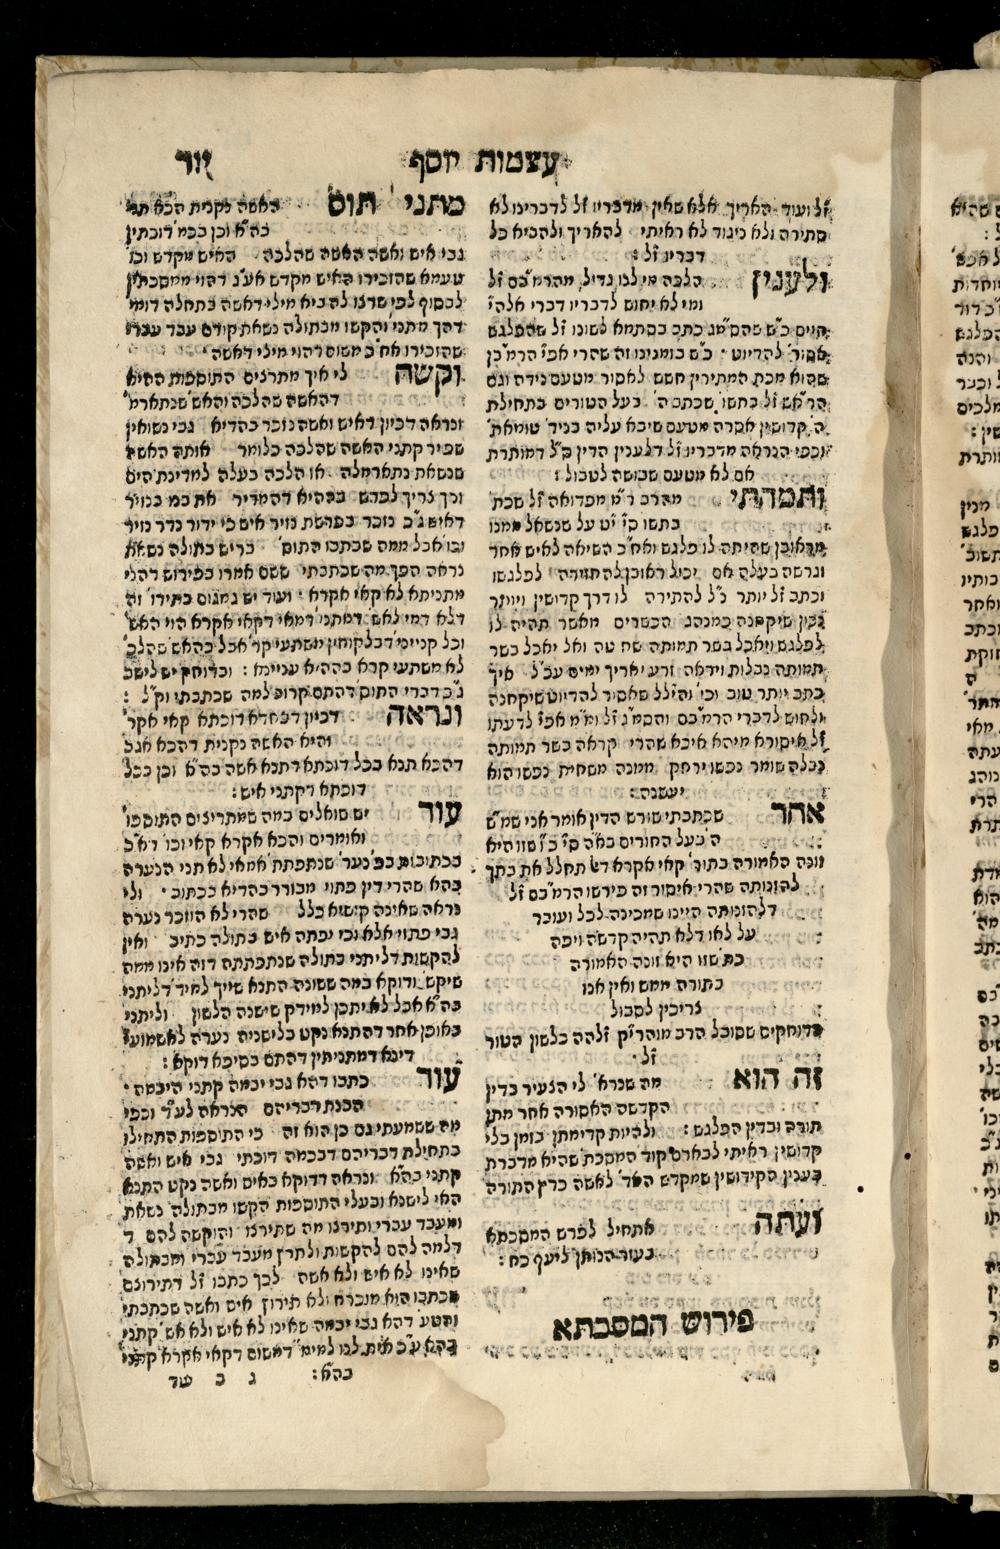 עצמות יוסף
ז"ל ועוד האריך אלא שאין מדבריו ז"ל לדברינו לא
סתירה ולא ניגוד לא ראיתי להאריך ולהביא כל
דבריו ז"ל :
ולענין הלכה מי לנו גדול מהרמ"בם ז"ל
ומי לא יחוש לדבריו דברי אלהי"
חיים כ"ש שהסמ"ג כתב בסתמא לשונו ז"ל שהפלגש
אסור' להדיוט כ"ש בזמנינו זה שהרי אפי' הרמ"בן
שהוא מכת המתירין חשש לאסור מטעם נידה וגם
הרא"ש ז"ל בתשו' שכתב ה' בעל הטורים בתחילת
ה' קדושין אסרה מטעם שיבא עליה בניד' טומאת'
וכפי הנראה מדבריו ז"ל דלענין הדין ס"ל דמותרת
אם לא מטעם שבושה לטבול :
ותמהתי מהרב ר"מ מפדואה ז"ל שכת'
בתשו' סי' י"ט על שנשאל ממנו
מראובן שהיתה לו פלגש ואח"כ השיאה לאיש אחר
וגרשה בעלה אם יכול ראובן להחזירה לפלגשו
וכתב ז"ל יותר נ"ל להתירה לו דרך קדושין ויותר
נכון שיקחנה כמנהג הכשרים מאשר תהיה לו
לפלגש ויאכל בשר תמותה שחוטה ואל יאכל בשר
תמותה נבלות ויראה זרע יאריך ימים עכ"ל איך
כתב יותר טוב וכו' והי"לל שאסור להדיוט שיקחנה
ולחוש לדברי הרמ"בם והסמ"ג ז"ל ומ"מ אפי' לדעתו
ז"ל איסורא מיהא איכא שהרי קראה בשר תמותה
נבלה שומר נפשו ירחק ממנה משחית נפשו הוא
יעשנה :
אחר שכתבתי שורש הדין אומר אני שמ"ש
ה' בעל הטורים בא"ה סי' כ"ו שזו היא
זונה האמורה בתור' קאי אקרא ד"ש תחלל את בתך
להזנותה שהרי איסור זה פירשו הרמ"בם ז"ל
דלהזנותה היינו שמכינה לכל ועובר
על לאו דלא תהיה קדשה ויפה
כת' שזו היא זונה האמורה
בתורה ממש ואין אנו
צריכין לסבול
הדוחקים שסובל הרב מוהרי"ק זלהה בלשון הטור
ז"ל
זה הוא מה שנרא' לי הצעיר בדין
הקדשה האסורה אחר מתן
תורה ובדין הפלגש : ולהיות קדימתן בזמן בלי
קדושין ראיתי לבארם קוד' המסכת שהיא מדברת
בענין הקידושין שמקדש האד' לאשה כדין התורה
ועתה אתחיל לפרש המסכתא
בעזר הנותן ליעף כח :
פירוש המסכתא
מתני' תוס' האשה נקנית הכא תני
בה"א וכן בכמ' דוכתין
גבי איש ואשה האשה שהלכה האיש מקדש וכו'
טעמא שהזכירו האיש מקדש אע"ג דהוי ממסכתין
לבסוף לפי שרצו להביא מילי דאשה בתחלה דומי'
דהך מתני' והקשו מבתולה נשאת קודם עבד עברי
שהזכירו אח"כ משום דהוי מילי דאשה
וקשה לי איך מתרצים התוספות ההיא
דהאשה שהלכה והאש' שנתארמ'
ונראה דכיון דאיש ואשה נזכר בהדיא גבי נשואין
שפיר קתני האשה שהלכה כלומר אותה האשה
שנשאת נתארמלה או הלכה בעלה למדינת הים
וכך צריך לפרש בההיא דהמדיר את במ בנזיר
דאיש ג"כ נזכר בפרשת נזיר איש כי ידור נדר נזיר
וכו' אבל ממה שכתבו התוס' בריש בתולה נשאת
נראה הפך מה שכתבתי ששם אמרו בפירוש דהני
מתניתא לא קאי אקרא ועוד יש גמגום בתירו' זה
דלא דמי לאש' דמתני' דמאי דקאי אקרא הוי האש'
וכל קנייני' דבלקוחין משתעי קר' אבל בהאש' שהלכ'
לא משתעי קרא בההיא עניינא : ובדוחק יש לישב
ג"כ דברי התוס' דהתם קרוב למה שכתבתי וק"ל :
ונראה דכיון דבחדא דוכתא קאי אקר'
והיא האשה נקנית דהכא אגב
דהכא תנא בכל דוכתא דתנא אשה בה"א וכן בכל
דוכתא דקתני איש :
עוד יש שואלים במה שמתרצים התוספו'
ואומרים והכא אקרא קאי וכו' דא"כ
בכתובות בפ' נער' שנתפתת' אמאי לא תני הנערה
בהא שהרי דין פתוי מבורר בהדיא בכתוב ולי
נראה שאינה קושיא כלל שהרי לא הוזכר נערה
גבי פתוי אלא וכי יפתה איש בתולה כתיב ואין
להקשות דליתני בתולה שנתפתתה דזה אינו ממה
שיקש' ודוקא במה ששונה התנא שייך למיד' דליתני
בה"א אבל לא יתכן למידק שישנה הלשון וליתני
באופן אחר דהתנא נקט בלישניה נערה לאשמועי'
דינא דמתניתין דהתם בסיפא דוקא :
עוד כתבו דהא גבי יבמה קתני היבמה
הבנת דבריהם הנראה לע"ד וכפי
מה ששמעתי גם כן הוא זה כי התוספות התחילו
בתחילת דבריהם דבכמה דוכתי גבי איש ואשה
קתני בה"א ונראה דדוקא באיש ואשה נקט התנא
האי לישנא ובעלי התוספות הקשו מבתולה נשאת
ומעבד עברי ותירצו מה שתירצו והוקשה להם ד
דלמה להם להקשות ולתרץ מעבד עברי ומבתולה
שאינו לא איש ולא אשה לכך כתבו ז"ל דתירוצם
שכתבו הוא מוכרח ולא תירוץ איש ואשה שכתבתי
והטע' דהא גבי יבמה שאינו לא איש ולא אש' קתני
בהא ע"כ אית לנו למימ' דמשום דקאי אקרא קתני
בה"א :
ג ב עוד